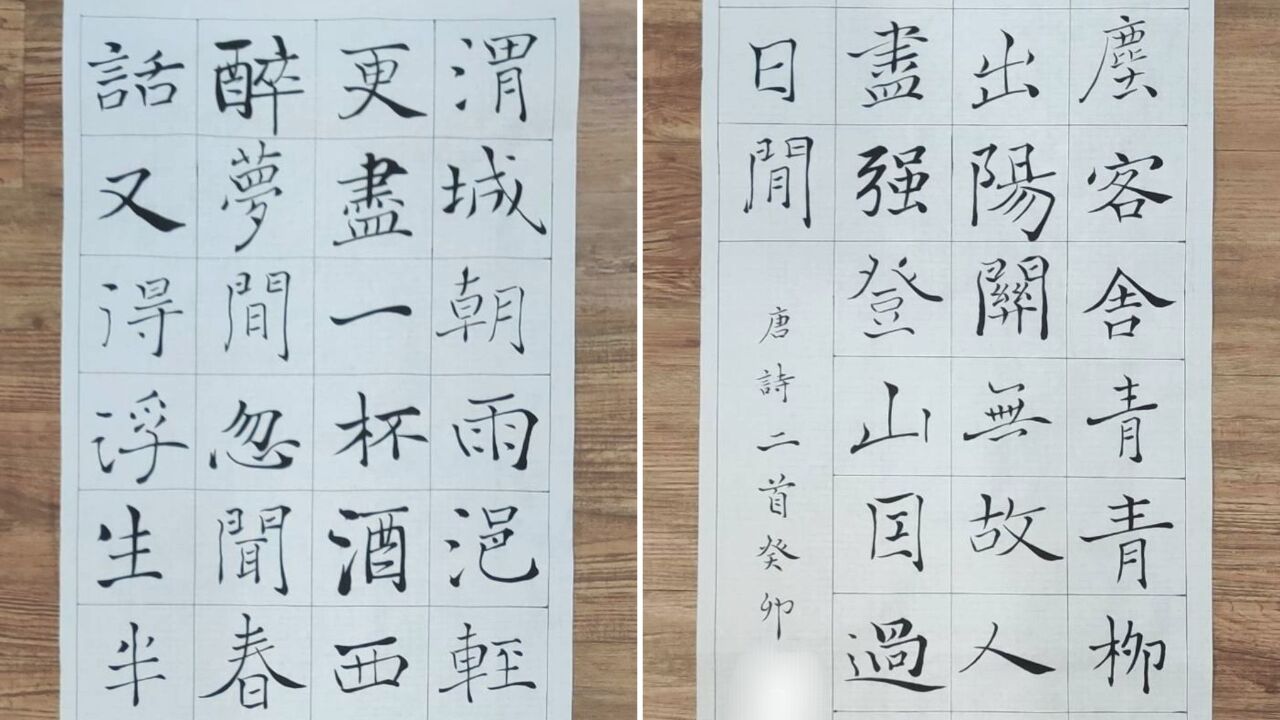 渭城朝雨浥輕
更盡一杯酒西
醉夢間忽聞春
話又得浮生半
塵客舍青青柳
出陽關無故人
盡强登山因過
日閒
唐詩二首癸卯